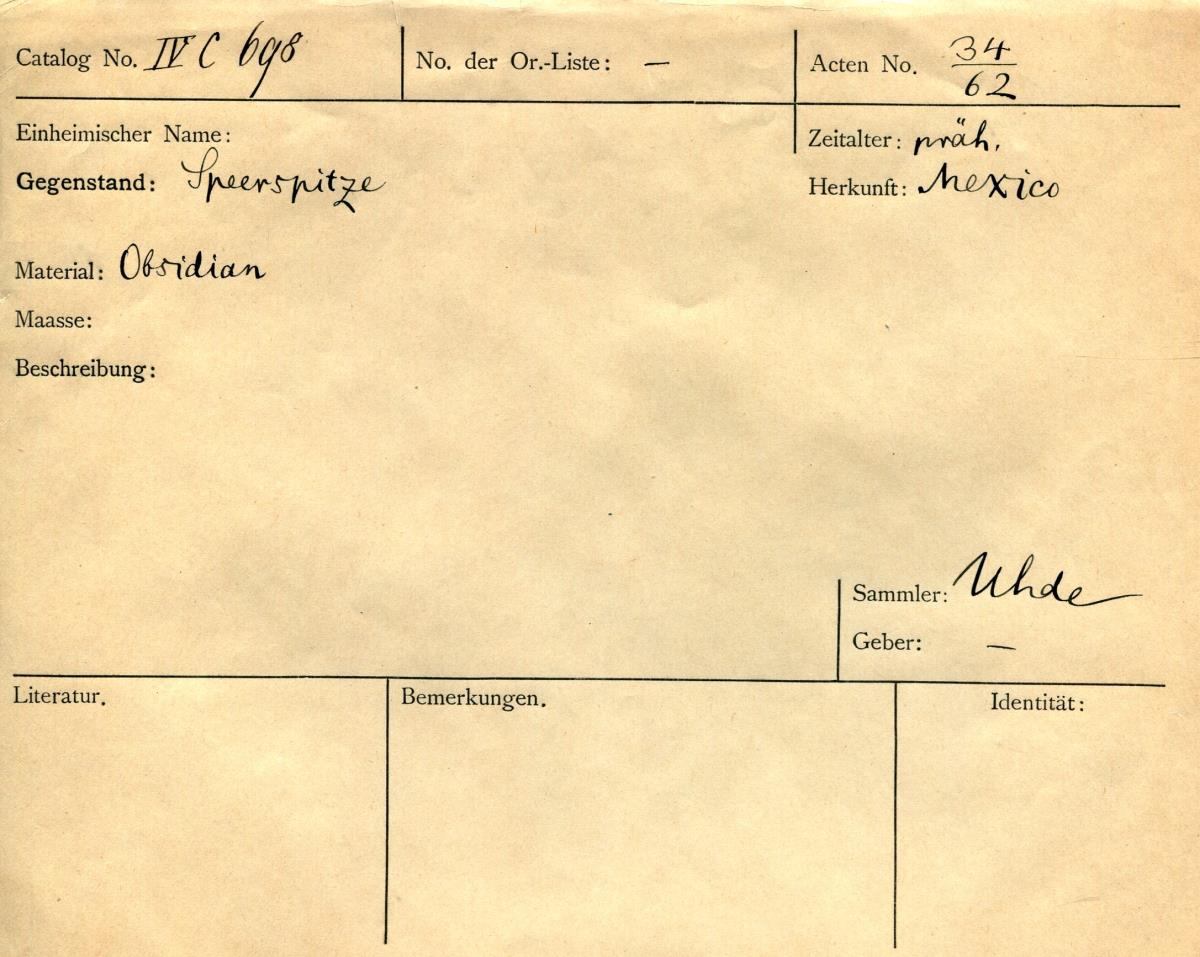 Catalog No. IV C 698 No. der Or.-Liste: — Acten No. 34/62
Einheimischer Name: Zeitalter: präh.
Gegenstand: Speerspitze Herkunft: Mexico
Material: Obsidian
Maasse:
Beschreibung:
Sammler: Uhde
Geber: —
Literatur. Bemerkungen. Identität: